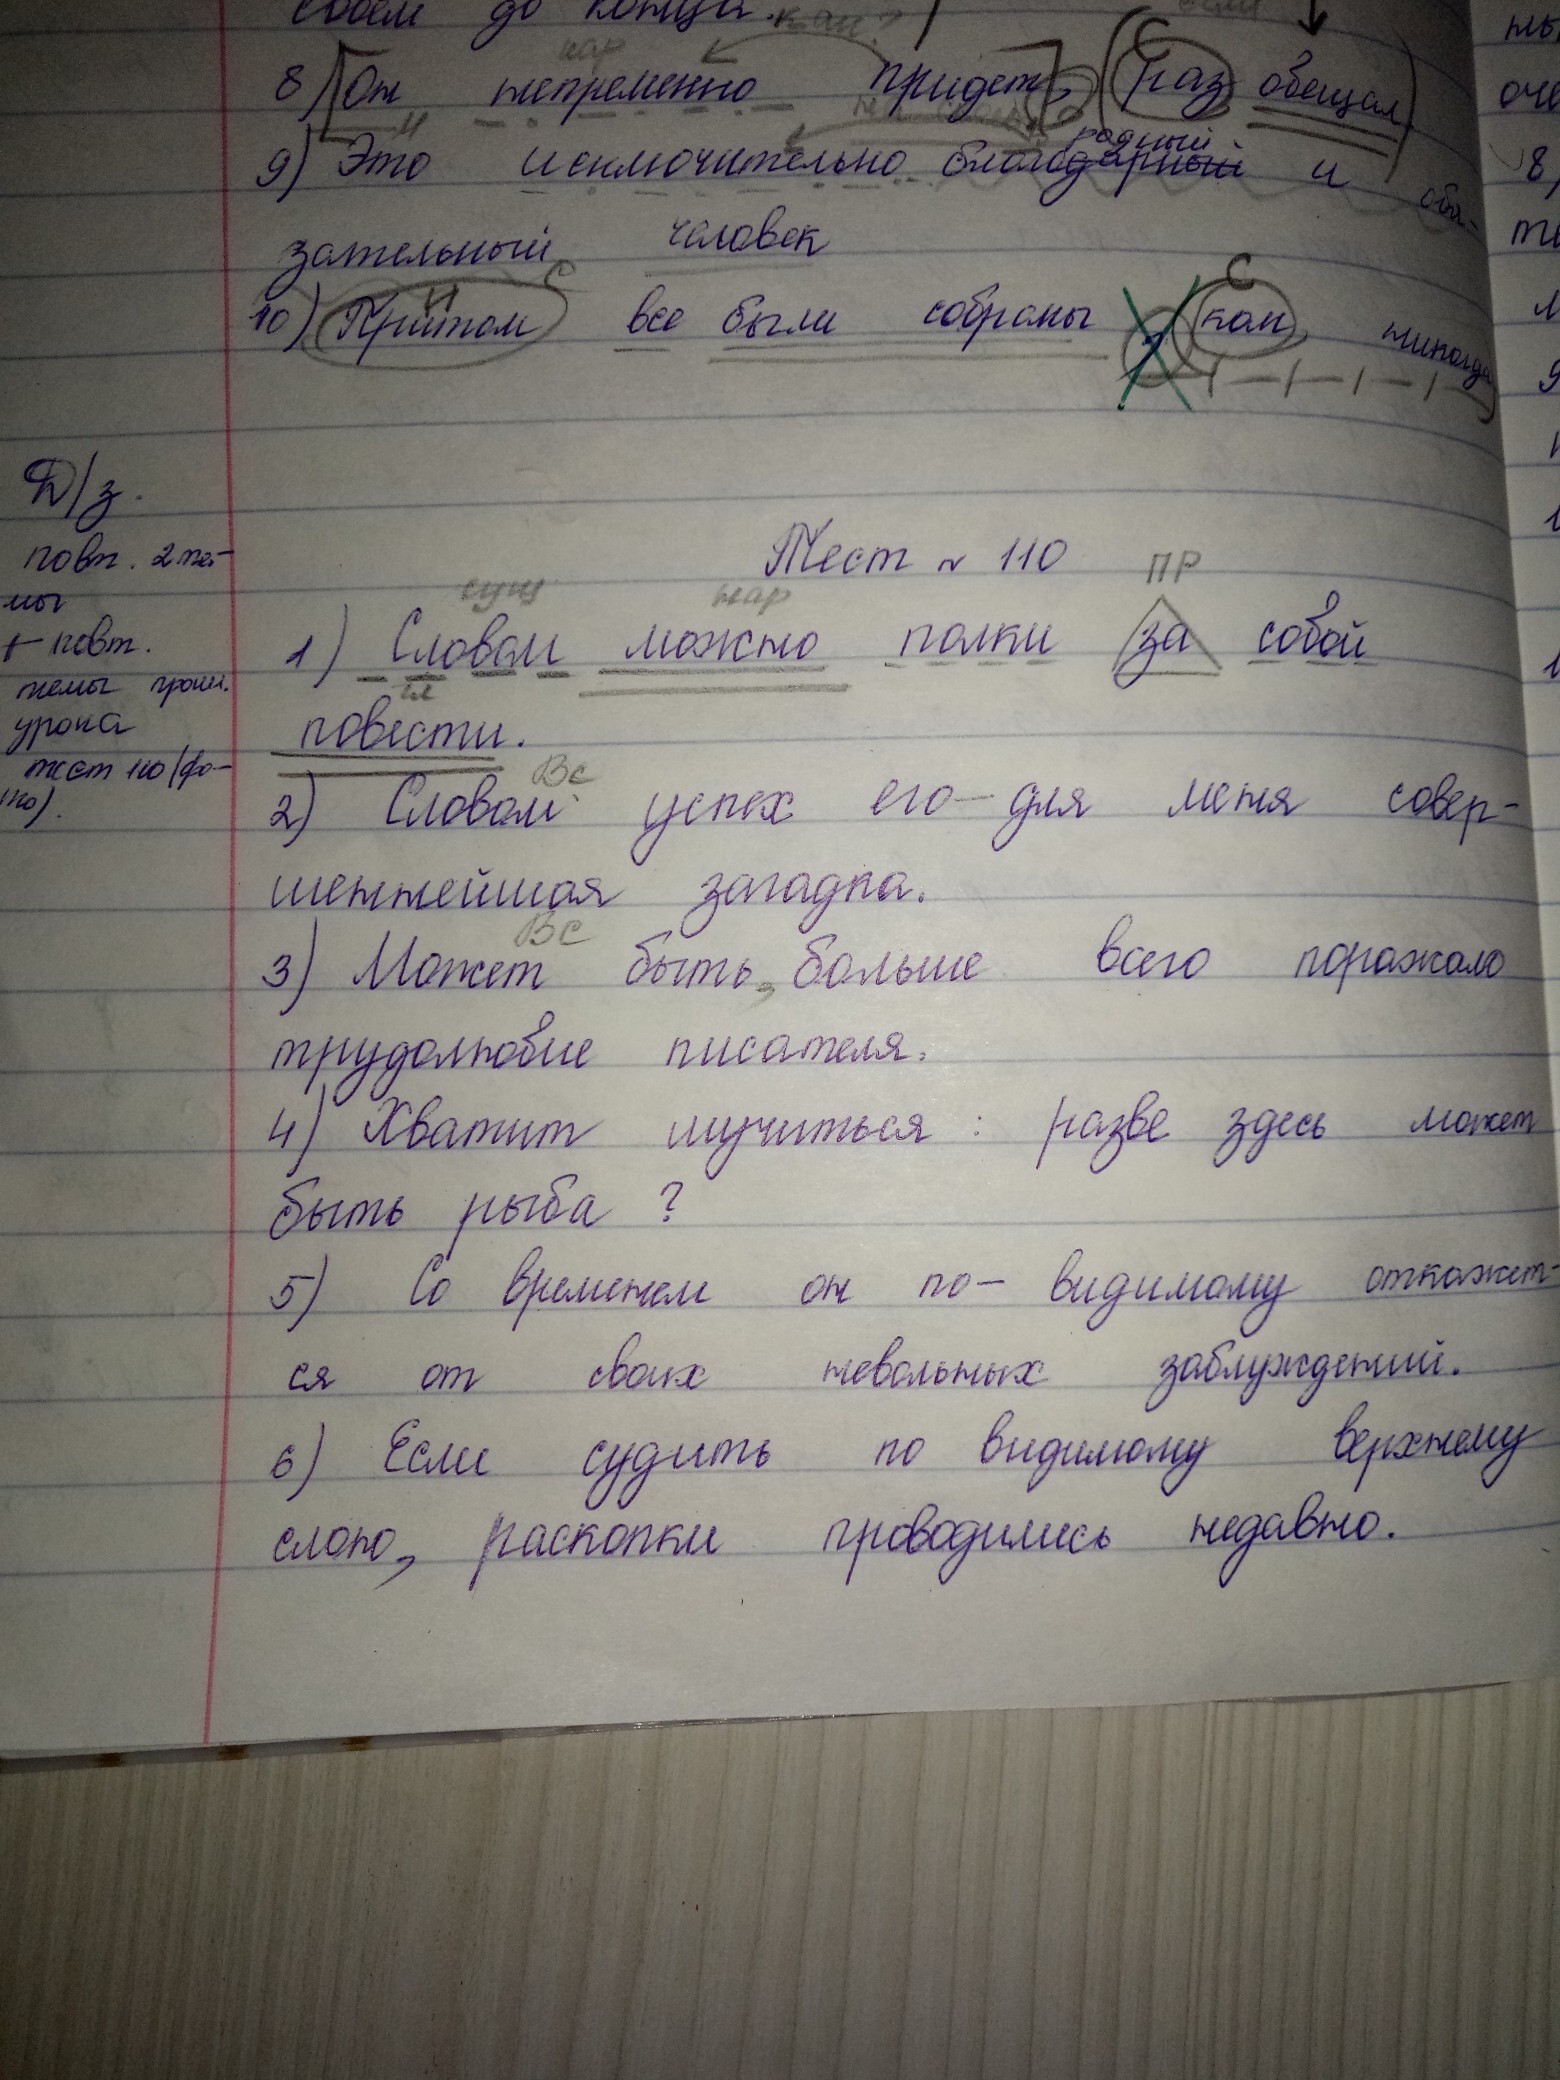 собой до конца.
как?
нар
8) Он непременно придет, (раз обещал)
9) Это исключительно благо родный дарный и обя-
зательный человек
С
10) Притом все были собраны, как никогда
Д/з.
повт. 2 те-
мы
+ повт.
темы прош.
урока
тест 110 (фо-
то).
Тест № 110
сущ нар ПР
1) Словом можно полки за собой
гл
повести.
Вс
2) Словом успех его – для меня совер-
шеннейшая загадка.
Вс
3) Может быть, больше всего поражало
трудолюбие писателя.
4) Хватит мучиться: разве здесь может
быть рыба?
5) Со временем он по-видимому откажет-
ся от своих невольных заблуждений.
6) Если судить по видимому верхнему
слою, раскопки проводились недавно.